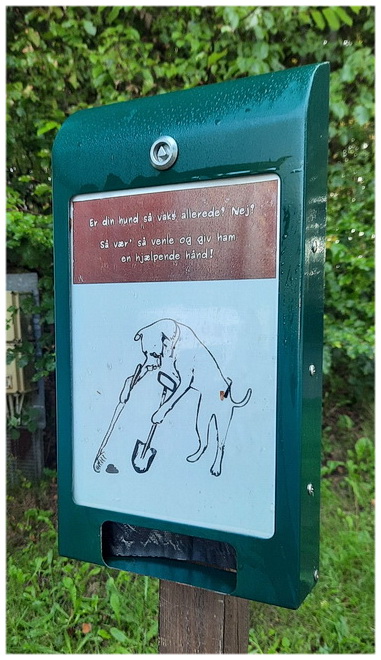 Er din hund så vaks allerede? Nej?
Så vær' så venle og giv ham
en hjælpende hånd!